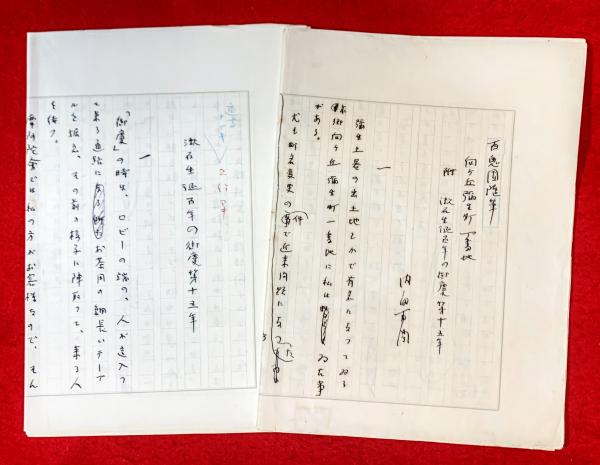 百鬼園随筆
向ヶ丘彌生町一番地
附 漱石生誕百年の御慶第十五年
内田百閒
一
彌生土器の出土地とかで有名になつてゐる
本郷向ヶ丘彌生町一番地に私はゐた事
がある。
尤も町名変更の事件で近来問題になつた
漱石生誕百年の御慶第十五年
一
「御慶」の時は、ロビーの端の、人が這入つ
て来る通路にお茶用の細長いテーブ
ルを据ゑ、その前の椅子に陣取つて、来る人
を待つ。
摩阿陀会では私の方がお客様なので、そん